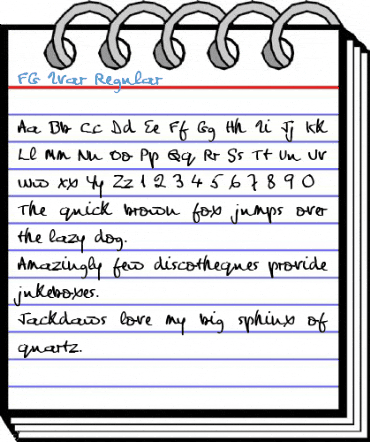 FG Ivar Regular
Aa Bb Cc Dd Ee Ff Gg Hh Ii Jj Kk
Ll Mm Nn Oo Pp Qq Rr Ss Tt Uu Vv
Ww Xx Yy Zz 1 2 3 4 5 6 7 8 9 0
The quick brown fox jumps over
the lazy dog.
Amazingly few discotheques provide
jukeboxes.
Jackdaws love my big sphinx of
quartz.